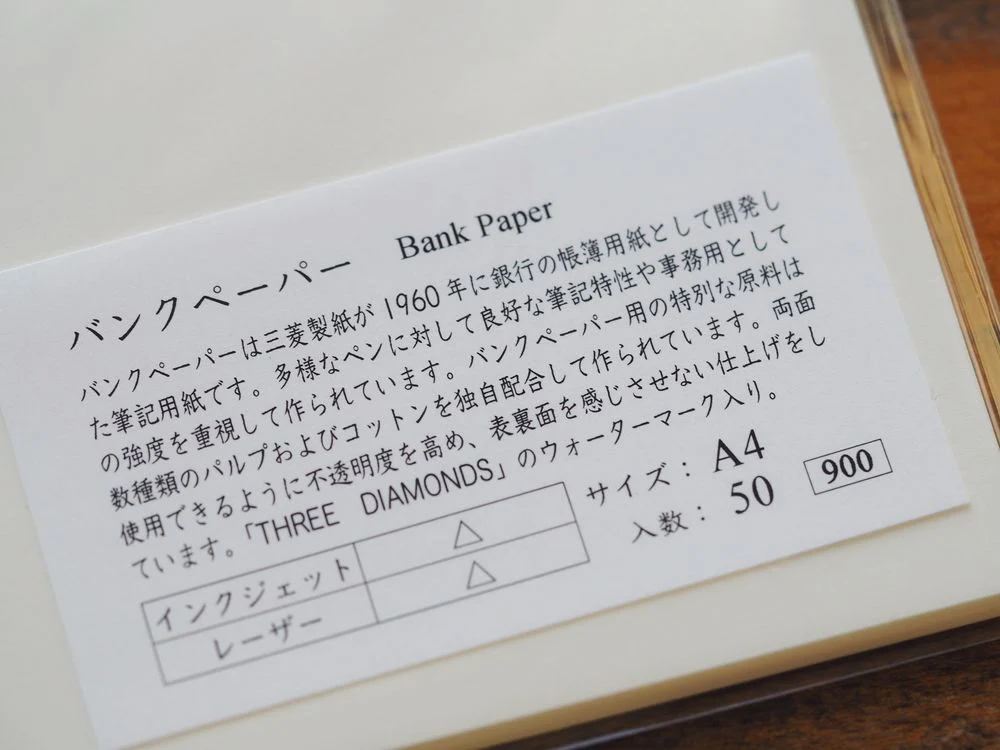 バンクペーパー　Bank Paper
バンクペーパーは三菱製紙が1960年に銀行の帳簿用紙として開発し
た筆記用紙です。多様なペンに対して良好な筆記特性や事務用として
の強度を重視して作られています。バンクペーパー用の特別な原料は
数種類のパルプおよびコットンを独自配合して作られています。両面
使用できるように不透明度を高め、表裏面を感じさせない仕上げをし
ています。「THREE　DIAMONDS」のウォーターマーク入り。
インクジェット　△
レーザー　△
サイズ：A4
入数：50
900